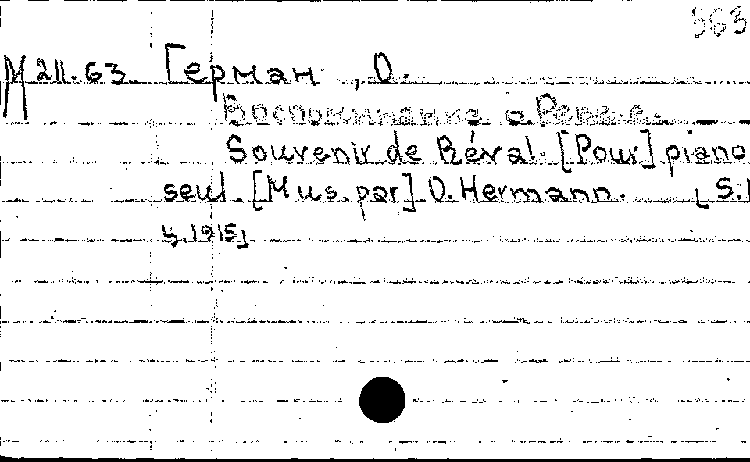 563
М 211.63 Герман, О.
Воспоминание о Ревеле.
Souvenir de Réval. [Pour] piano
seul. [Mus. par] O. Hermann. [S.l
ц. 1915]